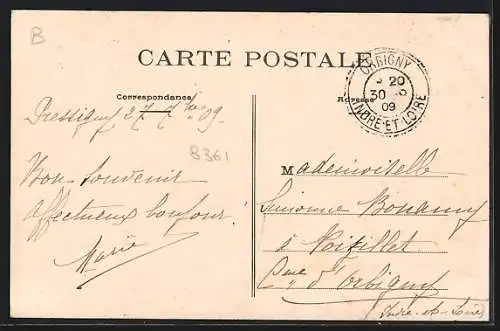 B
CARTE POSTALE
ORBIGNY
20
30
09
INDRE-ET-LOIRE
Correspondance
Adresse
Pressigny 27 7bre 09.
8361
Bon souvenir
affectueux bonjour!
Marie
Mademoiselle
Simonne Bonamy
à
Cne d'Orbigny
(Indre-et-Loire)